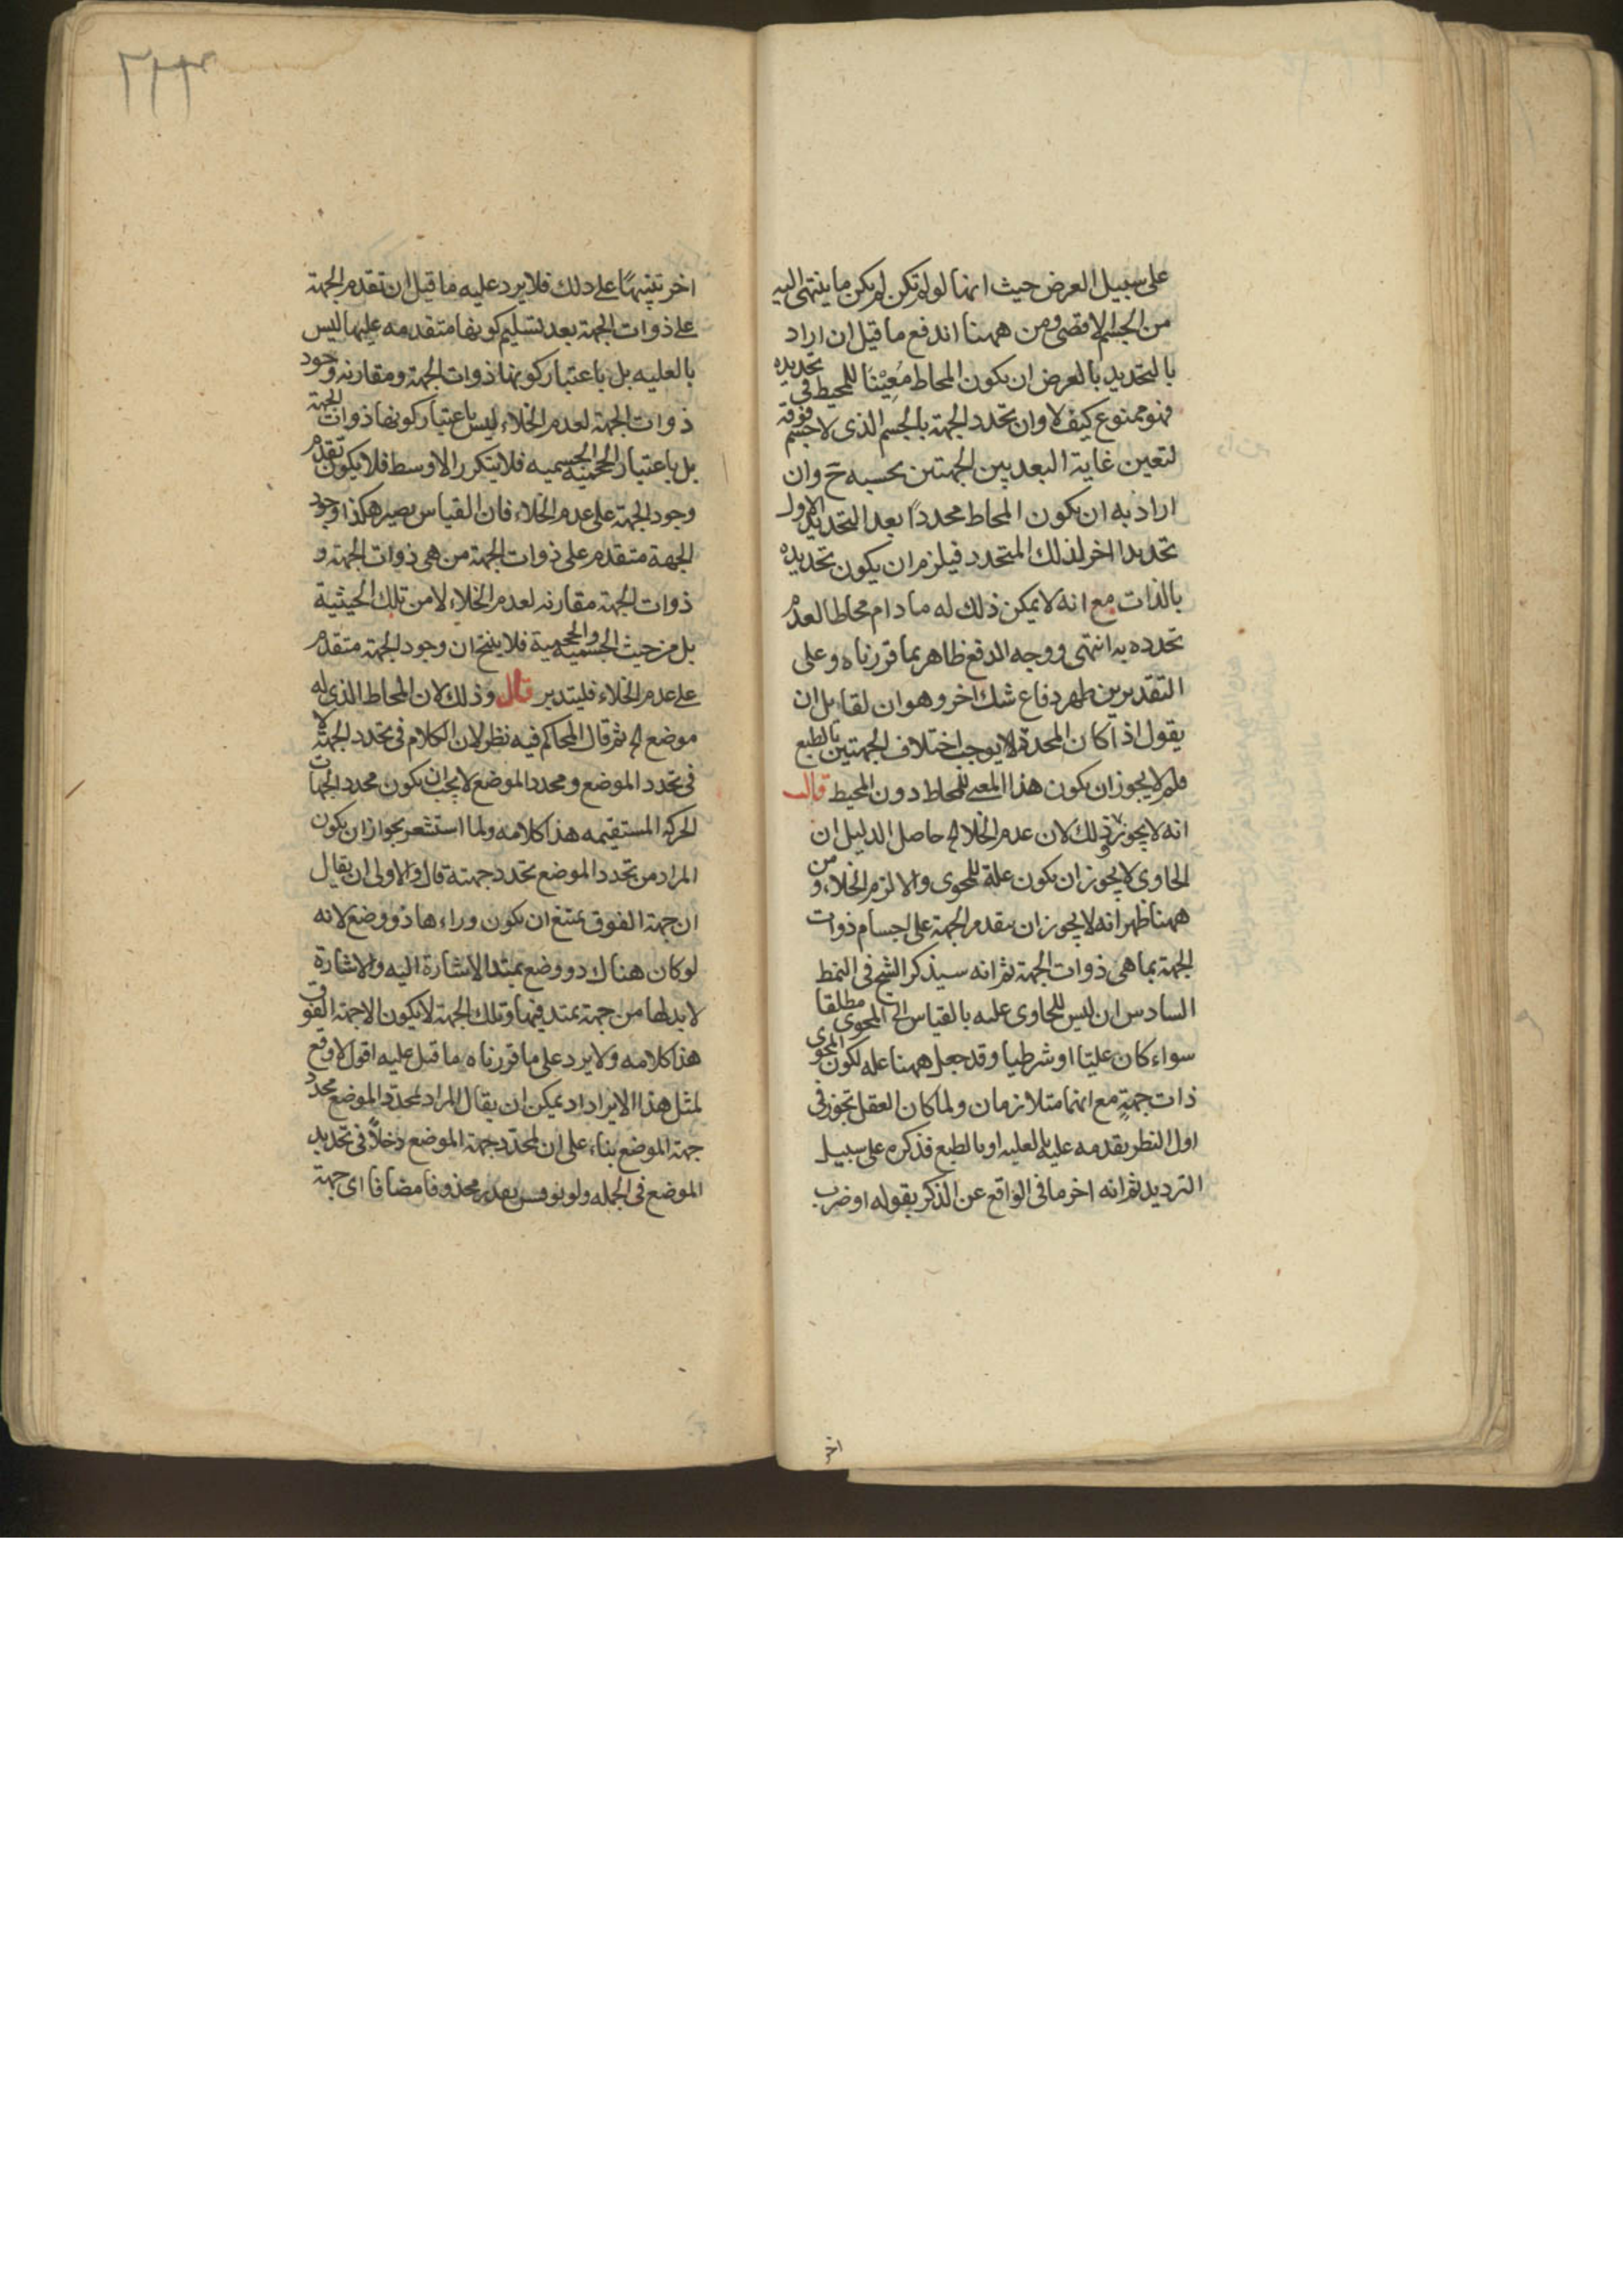 على سبيل العرض حيث انها لو لم تكن لم يكن ما ينتهى اليه
من الجسم الاقصى ومن ههنا اندفع ما قيل ان اراد
بالتحديد بالعرض ان يكون المحاط مُعِيْنًا للمحيط فى تحديده
فهو ممنوع كيف لا وان تحدد الجهة بالجسم الذى لا جسم فوقه
لتعين غاية البعد بين الجهتين بحسبه ح وان
اراد به ان يكون المحاط محدداً بعد التحديد الاول
تحديدا اخر لذلك المتحدد فيلزم ان يكون تحديده
بالذات مع انه لا يمكن ذلك له ما دام محاطا لعدم
تحدده به انتهى ووجه الدفع ظاهر بما قررناه وعلى
التقديرين ظهر دفاع شك اخر وهو ان لقايل ان
يقول اذا كان المحدد لا يوجب اختلاف الجهتين بالطبع
فلم لا يجوز ان يكون هذا المعنى للمحاط دون المحيط قال
انه لا يجوز وذلك لان عدم الخلا الخ حاصل الدليل ان
الحاوى لا يجوز ان يكون علة للمحوى والا لزم الخلاء ومن
ههنا ظهر انه لا يجوز ان يتقدم الجهة على اجسام ذوات
الجهة بما هى ذوات الجهة ثم انه سيذكر الشيخ فى النمط
السادس ان ليس للحاوى عليه بالقياس الى المحوى مطلقا
سواء كان عليّا او شرطيا وقد جعل ههنا عله لكون المحوى
ذات جهةٍ مع انهما متلازمان ولما كان العقل تجوز فى
اول النظر تقدمه عليه بالعليه او بالطبع فذكره على سبيل
الترديد ثم انه اخر ما فى الواقع عن الذكر بقوله او ضرب
اخر
٢٢٣
اخر تنبيهًا على ذلك فلا يرد عليه ما قيل ان تقدم الجهة
على ذوات الجهة بعد تسليم كونها متقدمه عليها ليس
بالعليه بل باعتبار كونها ذوات الجهة ومقارنه وجود
ذوات الجهة لعدم الخلاء ليس باعتبار كونها ذوات الجهة
بل باعتبار الحجميه الجسميه فلا يتكرر الاوسط فلا يكون تقدم
وجود الجهة على عدم الخلاء فان القياس يصير هكذا وجود
الجهة متقدم على ذوات الجهة من هى ذوات الجهة و
ذوات الجهة مقارنه لعدم الخلاء لا من تلك الحيثية
بل من حيث الجسميه والحجمية فلا ينتج ان وجود الجهة متقدم
على عدم الخلاء فليتدبر قال وذلك لان المحاط الذى له
موضع الخ ثم قال المحاكم فيه نظر لان الكلام فى تحدد الجهة لا
فى تحدد الموضع ومحدد الموضع لا يجب ان يكون محدد الجهات
الحركه المستقيمه هذا كلامه ولما استشعر بجواز ان يكون
المراد من تحدد الموضع تحدد جهته قال والاولى ان يقال
ان جهة الفوق يمتنع ان يكون وراءها ذو وضع لانه
لو كان هناك ذو وضع يمتد الاشارة اليه والاشارة
لا بد لها من جهة يمتد فيها وتلك الجهة لا يكون الا جهة الفوق
هذا كلامه ولا يرد على ما قررناه ما قيل عليه اقول لا وقع
لمثل هذا الايراد اذ يمكن ان يقال المراد لمحدّد الموضع محدد
جهة الموضع بناء على ان لمحدّد جهة الموضع دخلاً فى تحديد
الموضع فى الجمله ولو محذوفا مضافا اى جهة